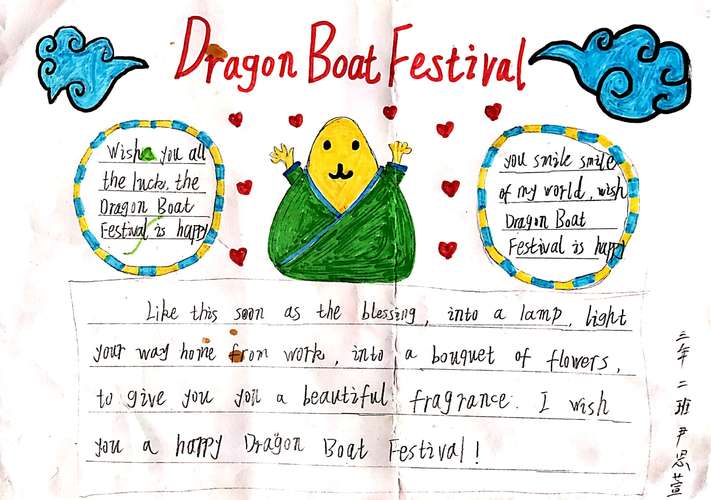 Dragon Boat Festival
Wish you all
the luck, the
Dragon Boat
Festival is happy
you smile smile
of my world, wish
Dragon Boat
Festival is happy
Like this soon as the blessing, into a lamp, light
your way home from work, into a bouquet of flowers,
to give you you a beautiful fragrance. I wish
you a happy Dragon Boat Festival!
三年二班尹思